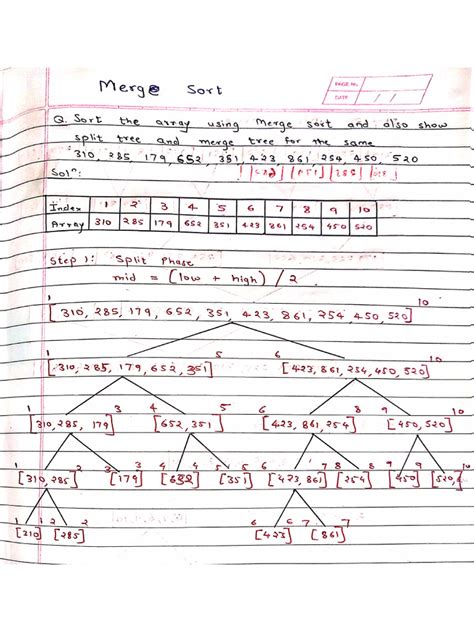 Merge Sort
PAGE No.
DATE / /
Q. Sort the array using Merge sort and also show
split tree and merge tree for the same
310, 285, 179, 652, 351, 423, 861, 254, 450, 520
Solⁿ:
Index 1 2 3 4 5 6 7 8 9 10
Array 310 285 179 652 351 423 861 254 450 520
Step 1: Split Phase
mid = (low + high) / 2
1 10
[310, 285, 179, 652, 351, 423, 861, 254, 450, 520]
1 5 6 10
[310, 285, 179, 652, 351] [423, 861, 254, 450, 520]
1 3 4 5 6 8 9 10
[310, 285, 179] [652, 351] [423, 861, 254] [450, 520]
1 2 3 3 4 4 5 5 6 7 8 8 9 9 10
[310, 285] [179] [652] [351] [423, 861] [254] [450] [520]
1 1 2 2 6 6 7 7
[310] [285] [423] [861]